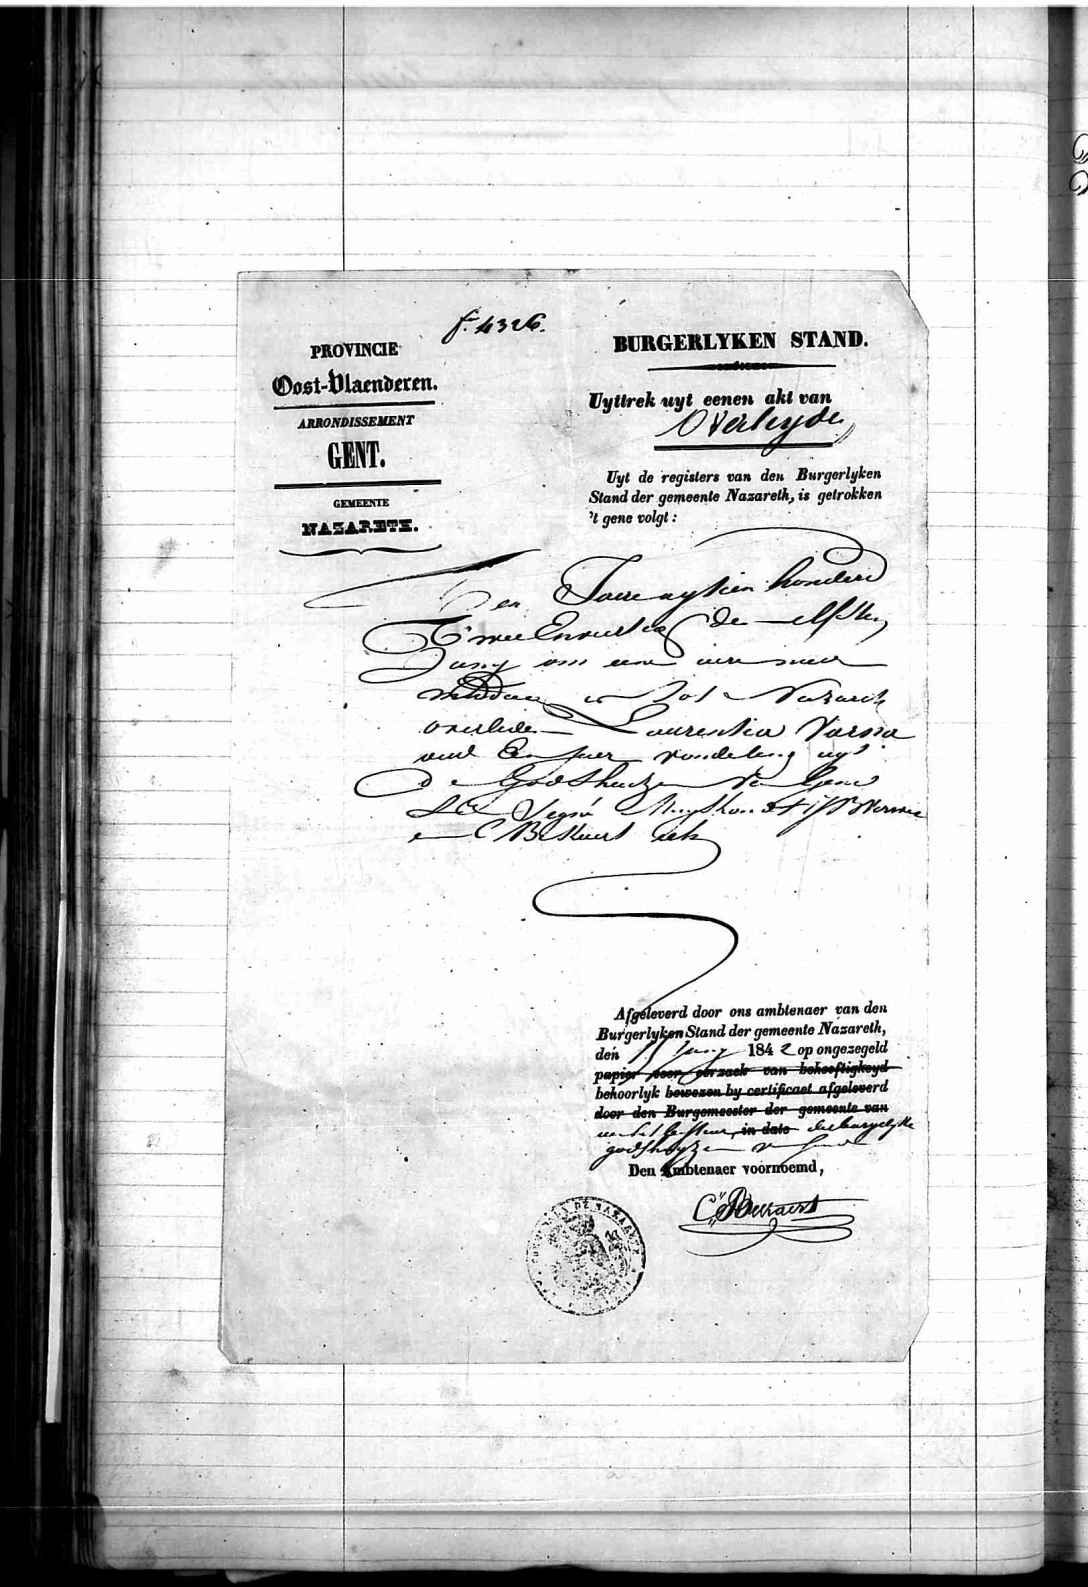 fº 4326.
PROVINCIE
Oost-Vlaenderen.
ARRONDISSEMENT
GENT.
GEMEENTE
NAZARETH.
BURGERLYKEN STAND.
Uyttrek uyt eenen akt van
Overlyden
Uyt de registers van den Burgerlyken
Stand der gemeente Nazareth, is getrokken
't gene volgt:
Den Jaere agtien honderd
Twee en veertig de elfsten
Juny om een ure naer
middag is tot Nazareth
overleden Laurentia Varna
oud Een jaer vondeling uyt
de Godshuyzen van Gend
C Bekaert
Afgeleverd door ons ambtenaer van den
Burgerlyken Stand der gemeente Nazareth,
den 11 Juny 1842 op ongezegeld
papier voor oorzaek van behoeftigheyd
behoorlyk bewezen by certificaet afgeleverd
door den Burgemeester der gemeente van
in date de burgerlyke
godshuyzen van Gend
Den Ambtenaer voornoemd,
C Bekaert
DE NAZARETH